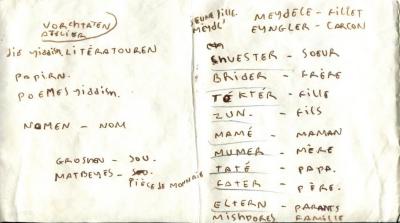 VORCHTATEN
ATELIER
DIE YIDDISH LITÉRATOUREN
PAPIRN.
POEMES YIDDISH.
NOMEN - NOM
GROSHEN - SOU.
MATBEYES - SOU.
PIÈCE DE MONNAIE
JEUNE FILLE
MEYDL'
MEYDELE - FILLET
EYNGLER - GARÇON
SHVESTER - SOEUR
BRIDER - FRÈRE
TOKTÉR - FILLE
ZUN. - FILS
MAMÉ - MAMAN
MUMER - MÈRE
TATÉ - PAPA.
FATER - PÈRE.
ELTERN - PARENTS
MISHPORES FAMILLE